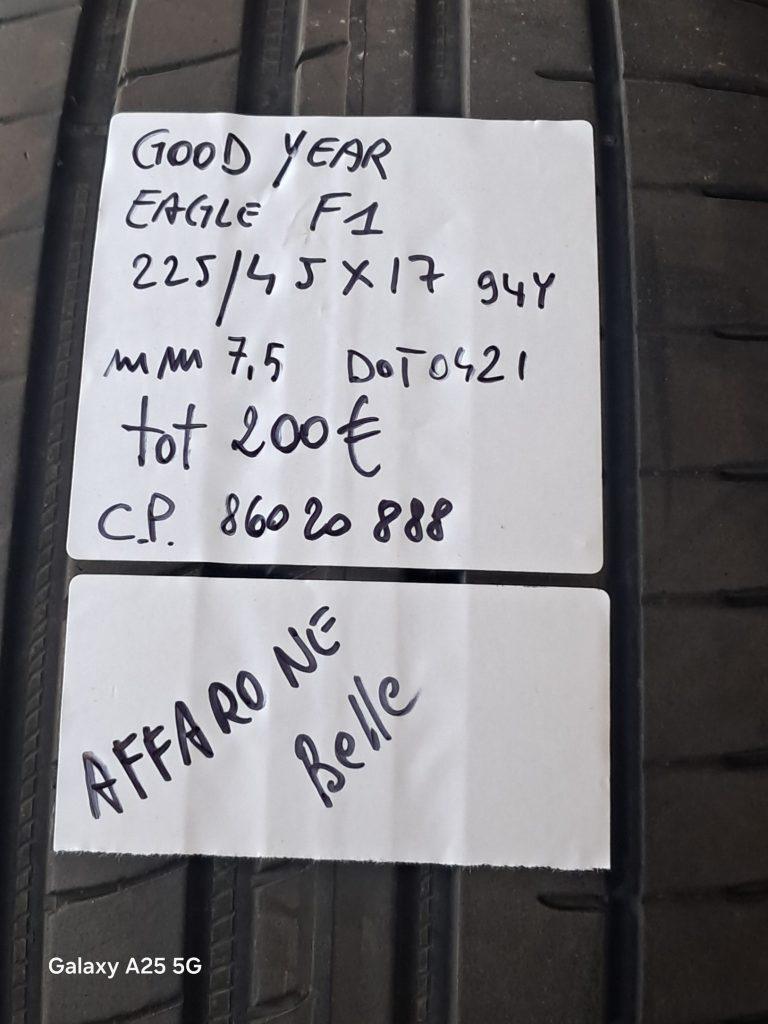 GOOD YEAR
EAGLE F1
225/45X17 94Y
mm 7,5 DOT0421
tot 200€
C.P. 86020888
AFFARONE
Belle
Galaxy A25 5G